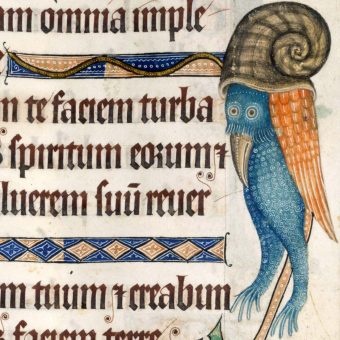 am omnia imple
m te faciem turba
spiritum eorum ⁊
luerem suū reuer
m tuum ⁊ creabun
faciem terre